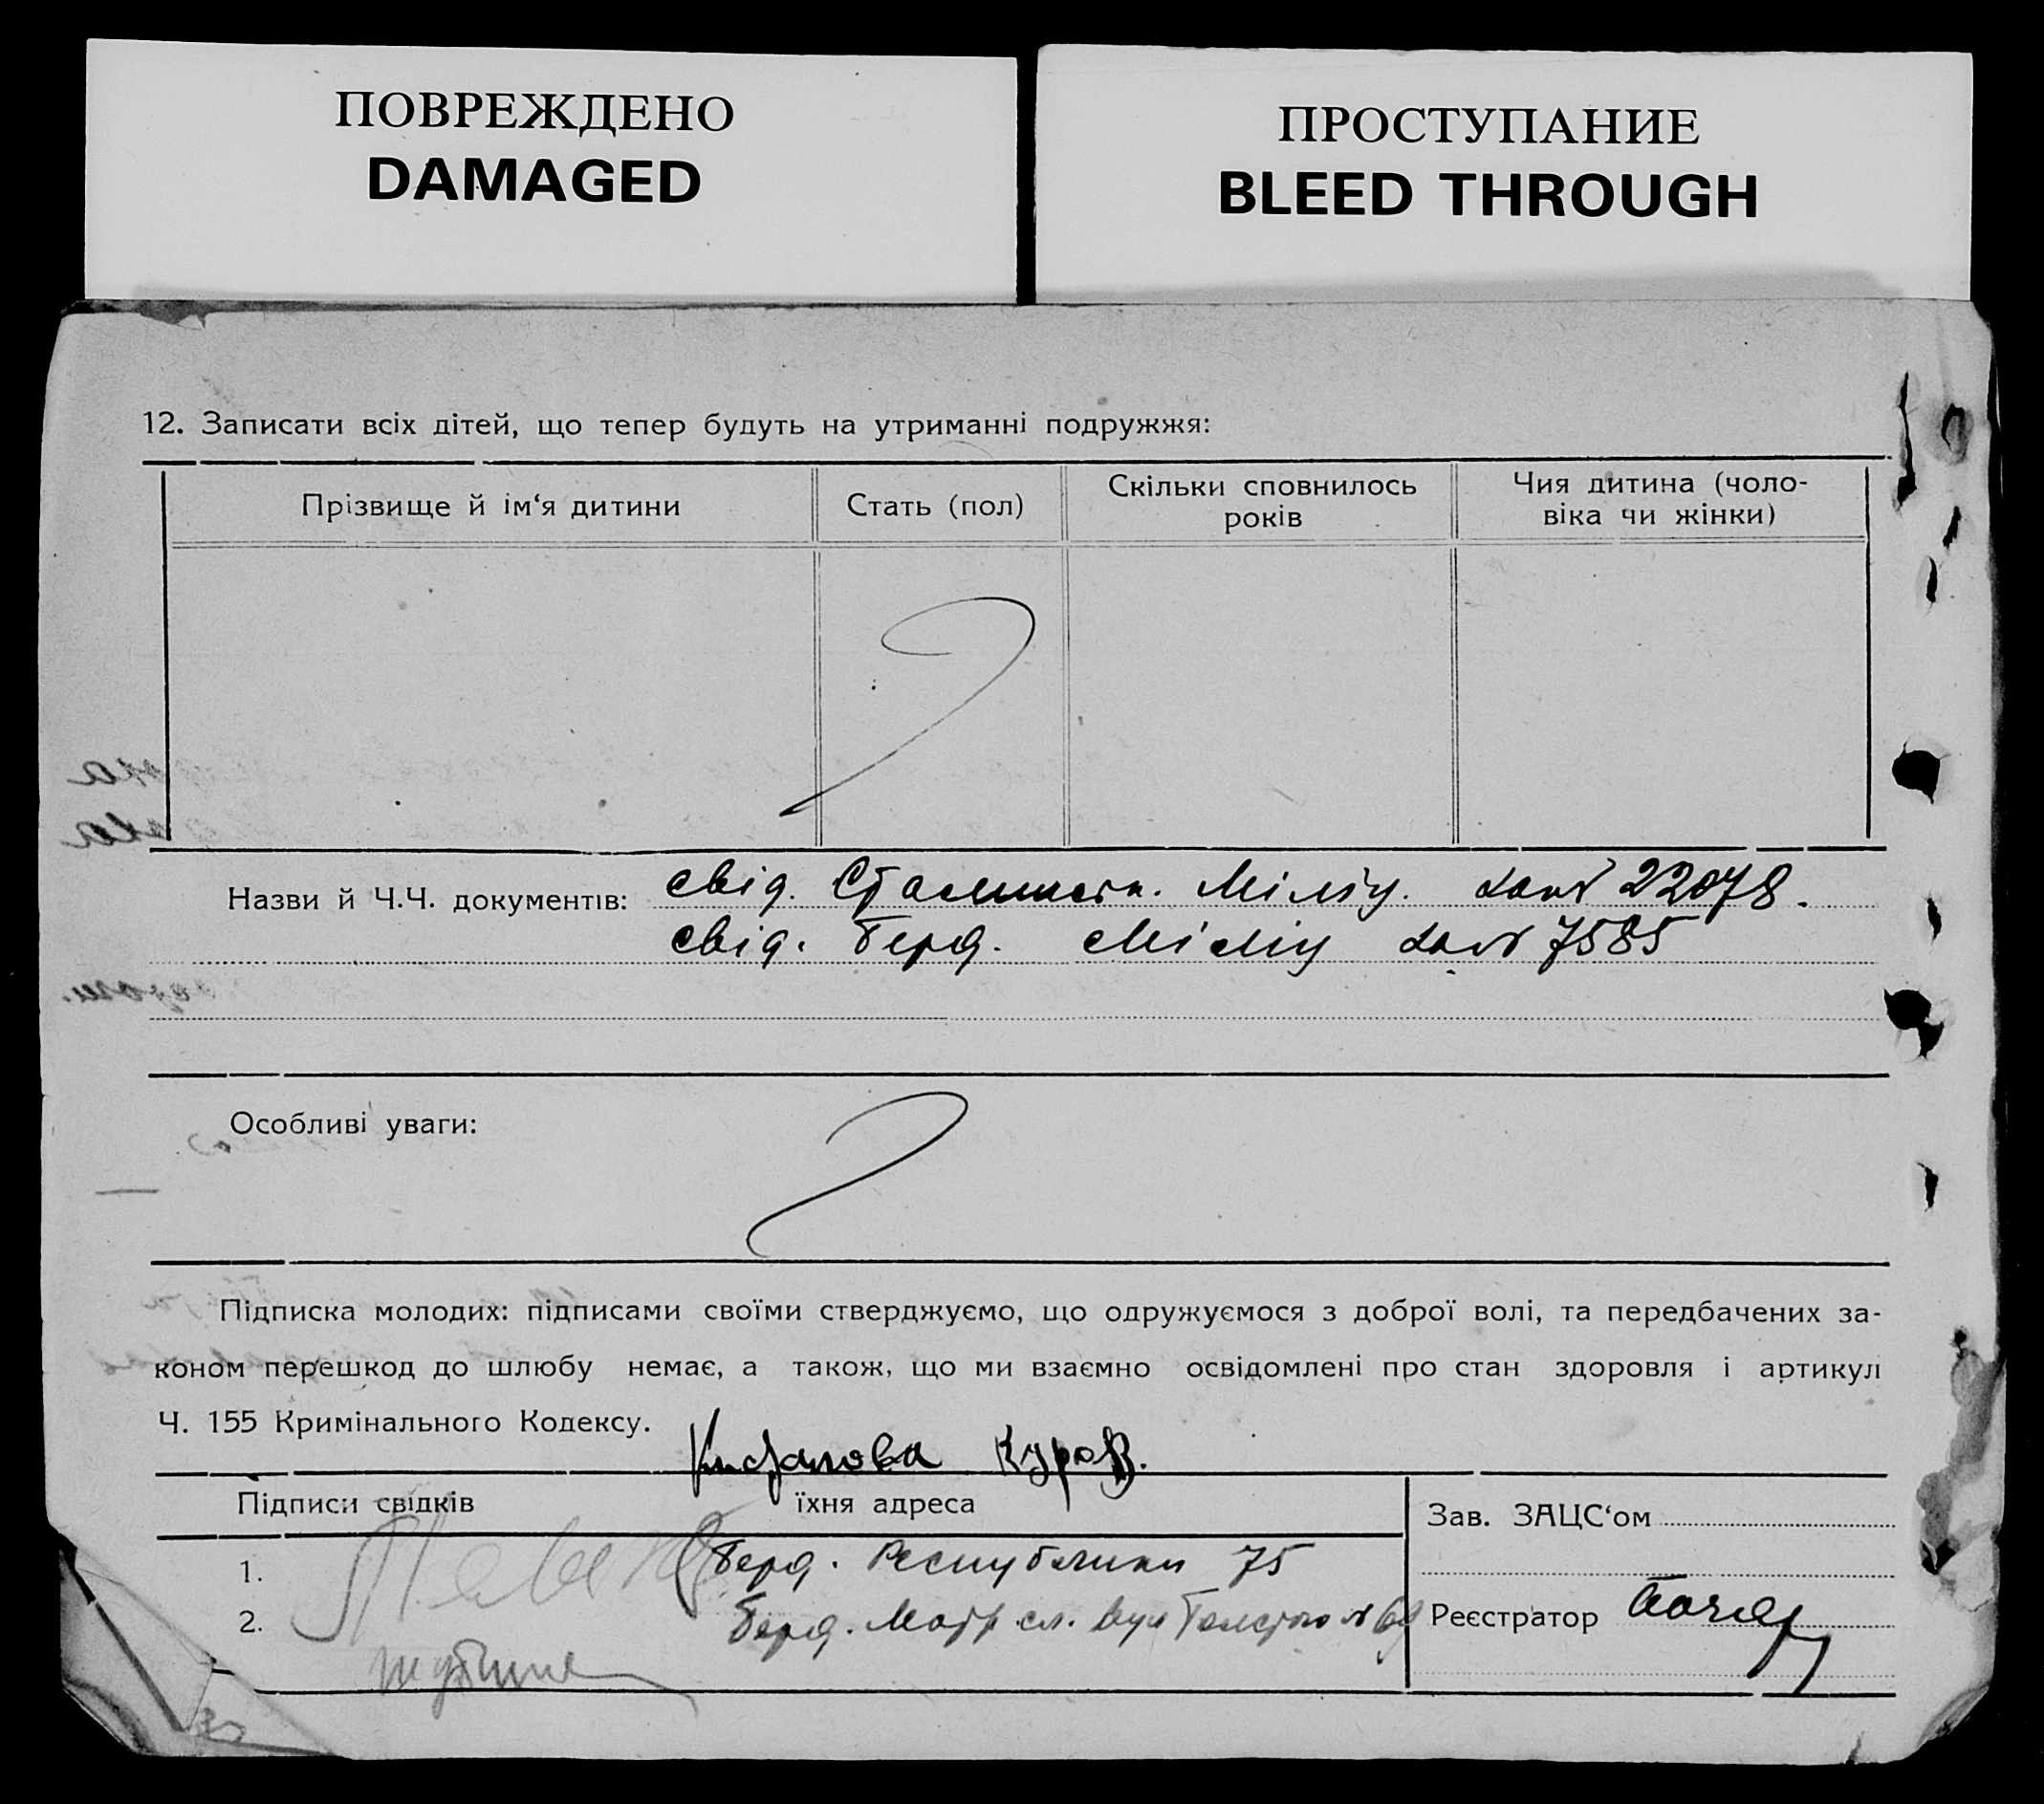 ПОВРЕЖДЕНО
DAMAGED
ПРОСТУПАНИЕ
BLEED THROUGH
12. Записати всіх дітей, що тепер будуть на утриманні подружжя:
Прізвище й ім‘я дитини
Стать (пол)
Скільки сповнилось
років
Чия дитина (чоло-
віка чи жінки)
Назви й Ч.Ч. документів: свід. Міліц. 22078.
свід. Берд. Міліц 7585
Особливі уваги:
Підписка молодих: підписами своїми стверджуємо, що одружуємося з доброї волі, та передбачених за-
коном перешкод до шлюбу немає, а також, що ми взаємно освідомлені про стан здоровля і артикул
Ч. 155 Кримінального Кодексу.
Підписи свідків
їхня адреса
1. Берд. Республики 75
2. Берд. сл. вул Толстого № 69
Зав. ЗАЦС‘ом
Реєстратор